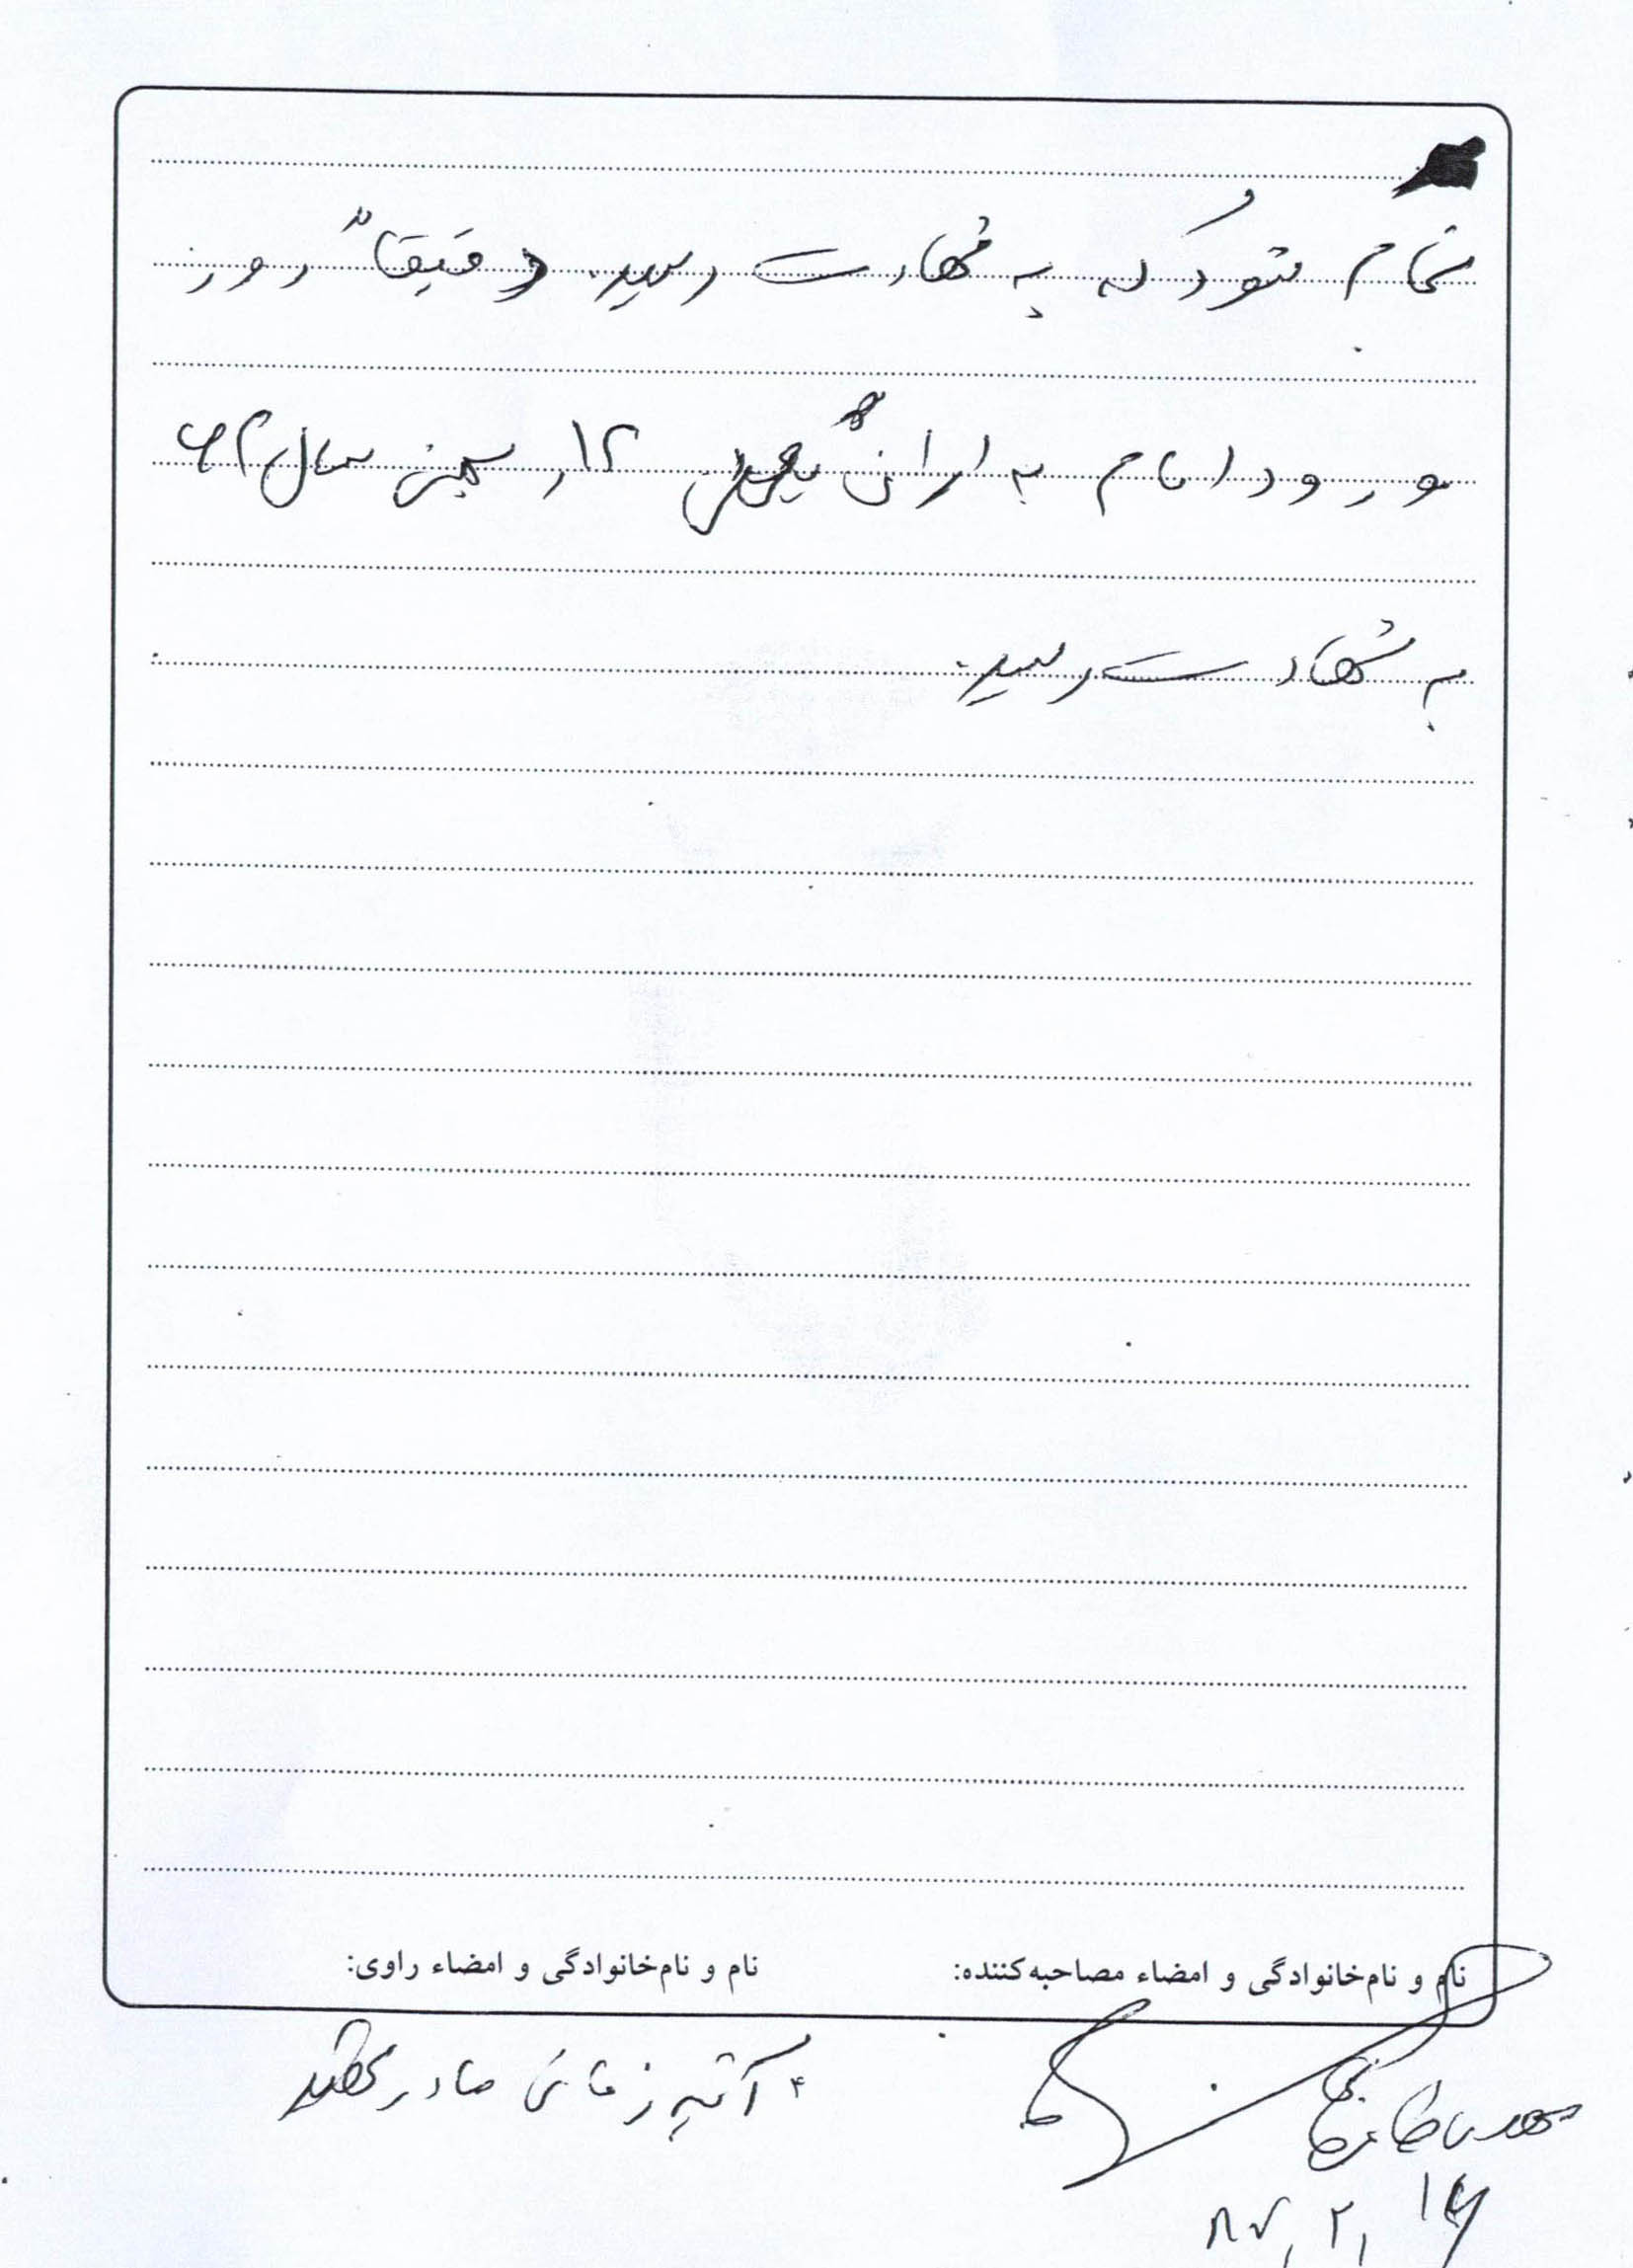 تمام نشود که به شهادت رسید. دقیقاً روز
ورود امام به ایران یعنی ۱۲ بهمن سال ۶۲
به شهادت رسید.
نام و نام‌خانوادگی و امضاء مصاحبه‌کننده: نام و نام‌خانوادگی و امضاء راوی:
آتیه زمانی مادر شهید
۸۷/۲/۱۷